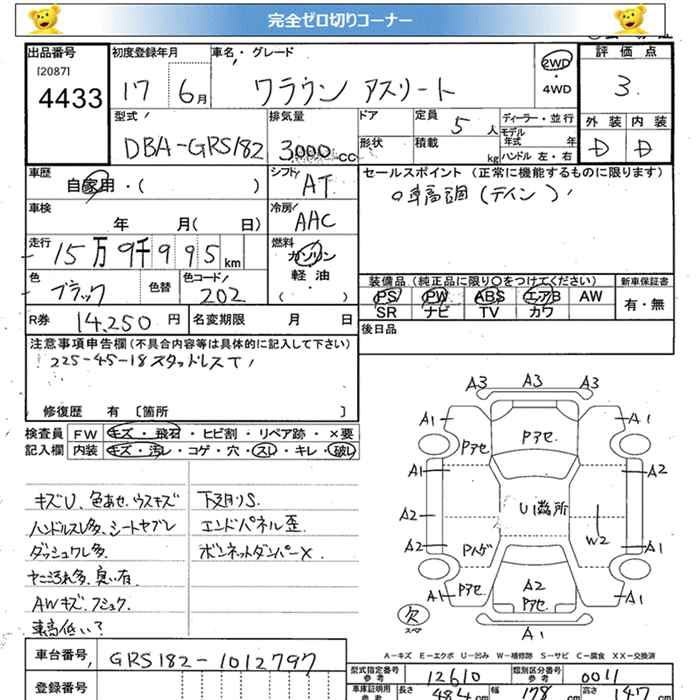 完全ゼロ切りコーナー
出品番号 初度登録年月 車名・グレード 評価点
[2087]
4433 17 6月 クラウン アスリート 2WD・4WD 3
型式 排気量 ドア 定員 5人 ディーラー・並行 外装 内装
DBA-GRS182 3000cc 形状 積載 kg モデル年式 年 ハンドル 左・右 D D
車歴 自家用・( ) シフト AT セールスポイント (正常に機能するものに限ります)
車検 年 月( 日) 冷房 AAC 車高調 (テイン)
走行 15万9千995km 燃料 ガソリン 軽油 ( )
色 ブラック 色替 色コード 202 装備品 (純正品に限り○をつけてください) 新車保証書
PS PW ABS エアB AW 有・無
SR ナビ TV カワ
R券 14,250円 名変期限 月 日 後日品
注意事項申告欄 (不具合内容等は具体的に記入して下さい)
225-45-18スタッドレスT
修復歴 有 [箇所 ]
検査員 FW キズ・飛石・ヒビ割・リペア跡・×要
記入欄 内装 キズ・汚レ・コゲ・穴・スレ・キレ・破レ
キズU、色あせ、ウスキズ 下廻りS.
ハンドルスレ多、シートヤブレ エンドパネル歪
ダッシュワレ多、 ボンネットダンパーX.
ヤニ汚れ多、臭い有、
AWキズ、フショク、
車高低い?
A3 A3 A3
A1 Pアセ Pアセ A1
A1 A2
A2 U1箇所
A2 W2 A1
Pハゲ
A1 Pアセ A2 Pアセ Pアセ A1
欠 スペア A1
A-キズ E-エクボ U-凹み W-補修跡 S-サビ C-腐食 XX-交換済
車台番号 GRS182-1012797
登録番号
型式指定番号 参考 12610 類別区分番号 参考 0011
車庫証明用 参考 長さ 484cm 幅 178cm 高さ 147cm